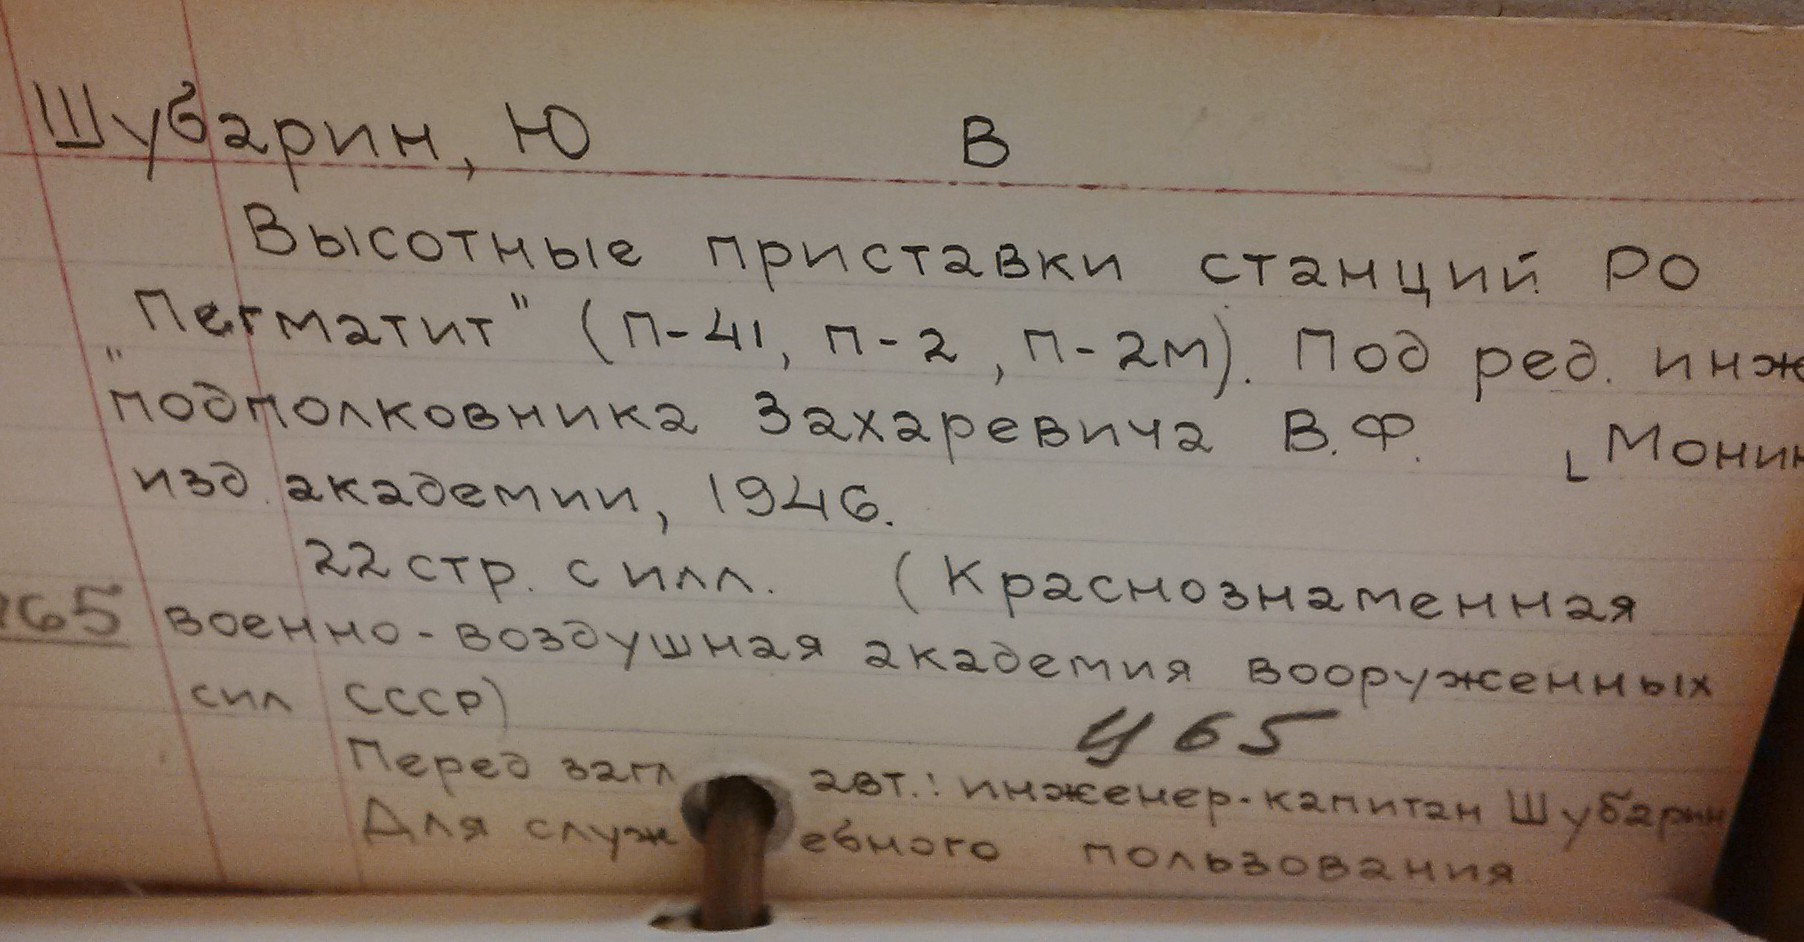 Шубарин, Ю В
Высотные приставки станций РО
„Пегматит" (П-41, П-2, П-2м). Под ред. инж
подполковника Захаревича В.Ф. [Монин
изд. академии, 1946.
22 стр. с илл. (Краснознаменная
165 военно-воздушная академия вооруженных
сил СССР)
У 65
Перед загл авт.: инженер-капитан Шубарин
Для служебного пользования